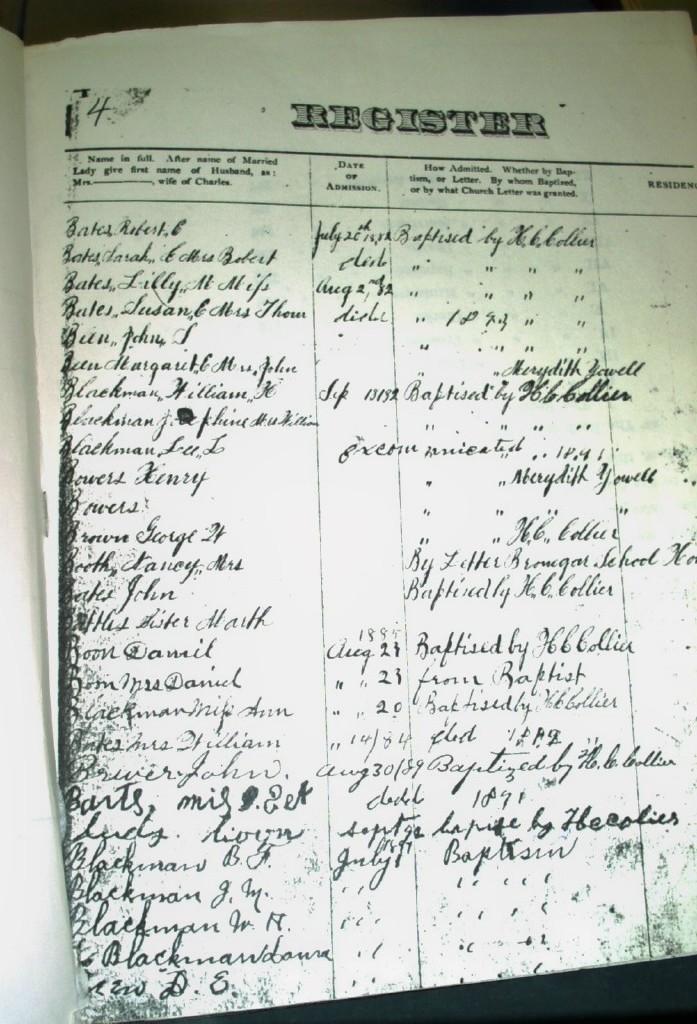 4
REGISTER
Name in full. After name of Married Lady give first name of Husband, as: Mrs. ———, wife of Charles.
DATE OF ADMISSION.
How Admitted. Whether by Baptism, or Letter. By whom Baptized, or by what Church Letter was granted.
RESIDENC
Bates, Robert, C July 20th 1882 Baptised by H. C. Collier
Bates, Sarah, E Mrs Robert died " " " "
Bates, Lilly, M Miss Aug 2nd 82 " " " "
Bates, Susan, E Mrs Thom died " 1893 " "
Bien, John, S " " "
Bien Margaret, E Mrs, John " " Merydith Yowell
Blackman, William, H Sep 13 182 Baptised by H. C. Collier
Blackman Josephine Mrs William " " " "
Blackman Lee, L excommunicated 1891
Bowers Henry " " Merydith Yowell
Bowers " " " "
Brown George W " " H. C. Collier
Booth, Nancy, Mrs By Letter Bromegar School Ho
Bates John Baptised by H. C. Collier
Sister Marth
Boon Daniel 1884 Aug 23 Baptised by H C Collier
Boon Mrs Daniel " " 23 from Baptist
Blackman Miss Ann " " 20 Baptised by H C Collier
Bates Mrs William " 14/84 died 1892
Brewer John. Aug 30/89 Baptized by H. C. Collier
Barts, mis died 1891
sept by Hecolier
Blackman B. F. July 1897 Baptism
Blackman J. M. " " " " " "
Blackman W. H. " " " " " "
Blackman Laura " " " "
D. E. " " " "